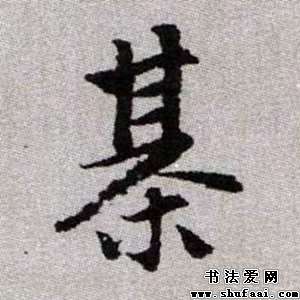 棊
书法爱网
www.shufaai.com